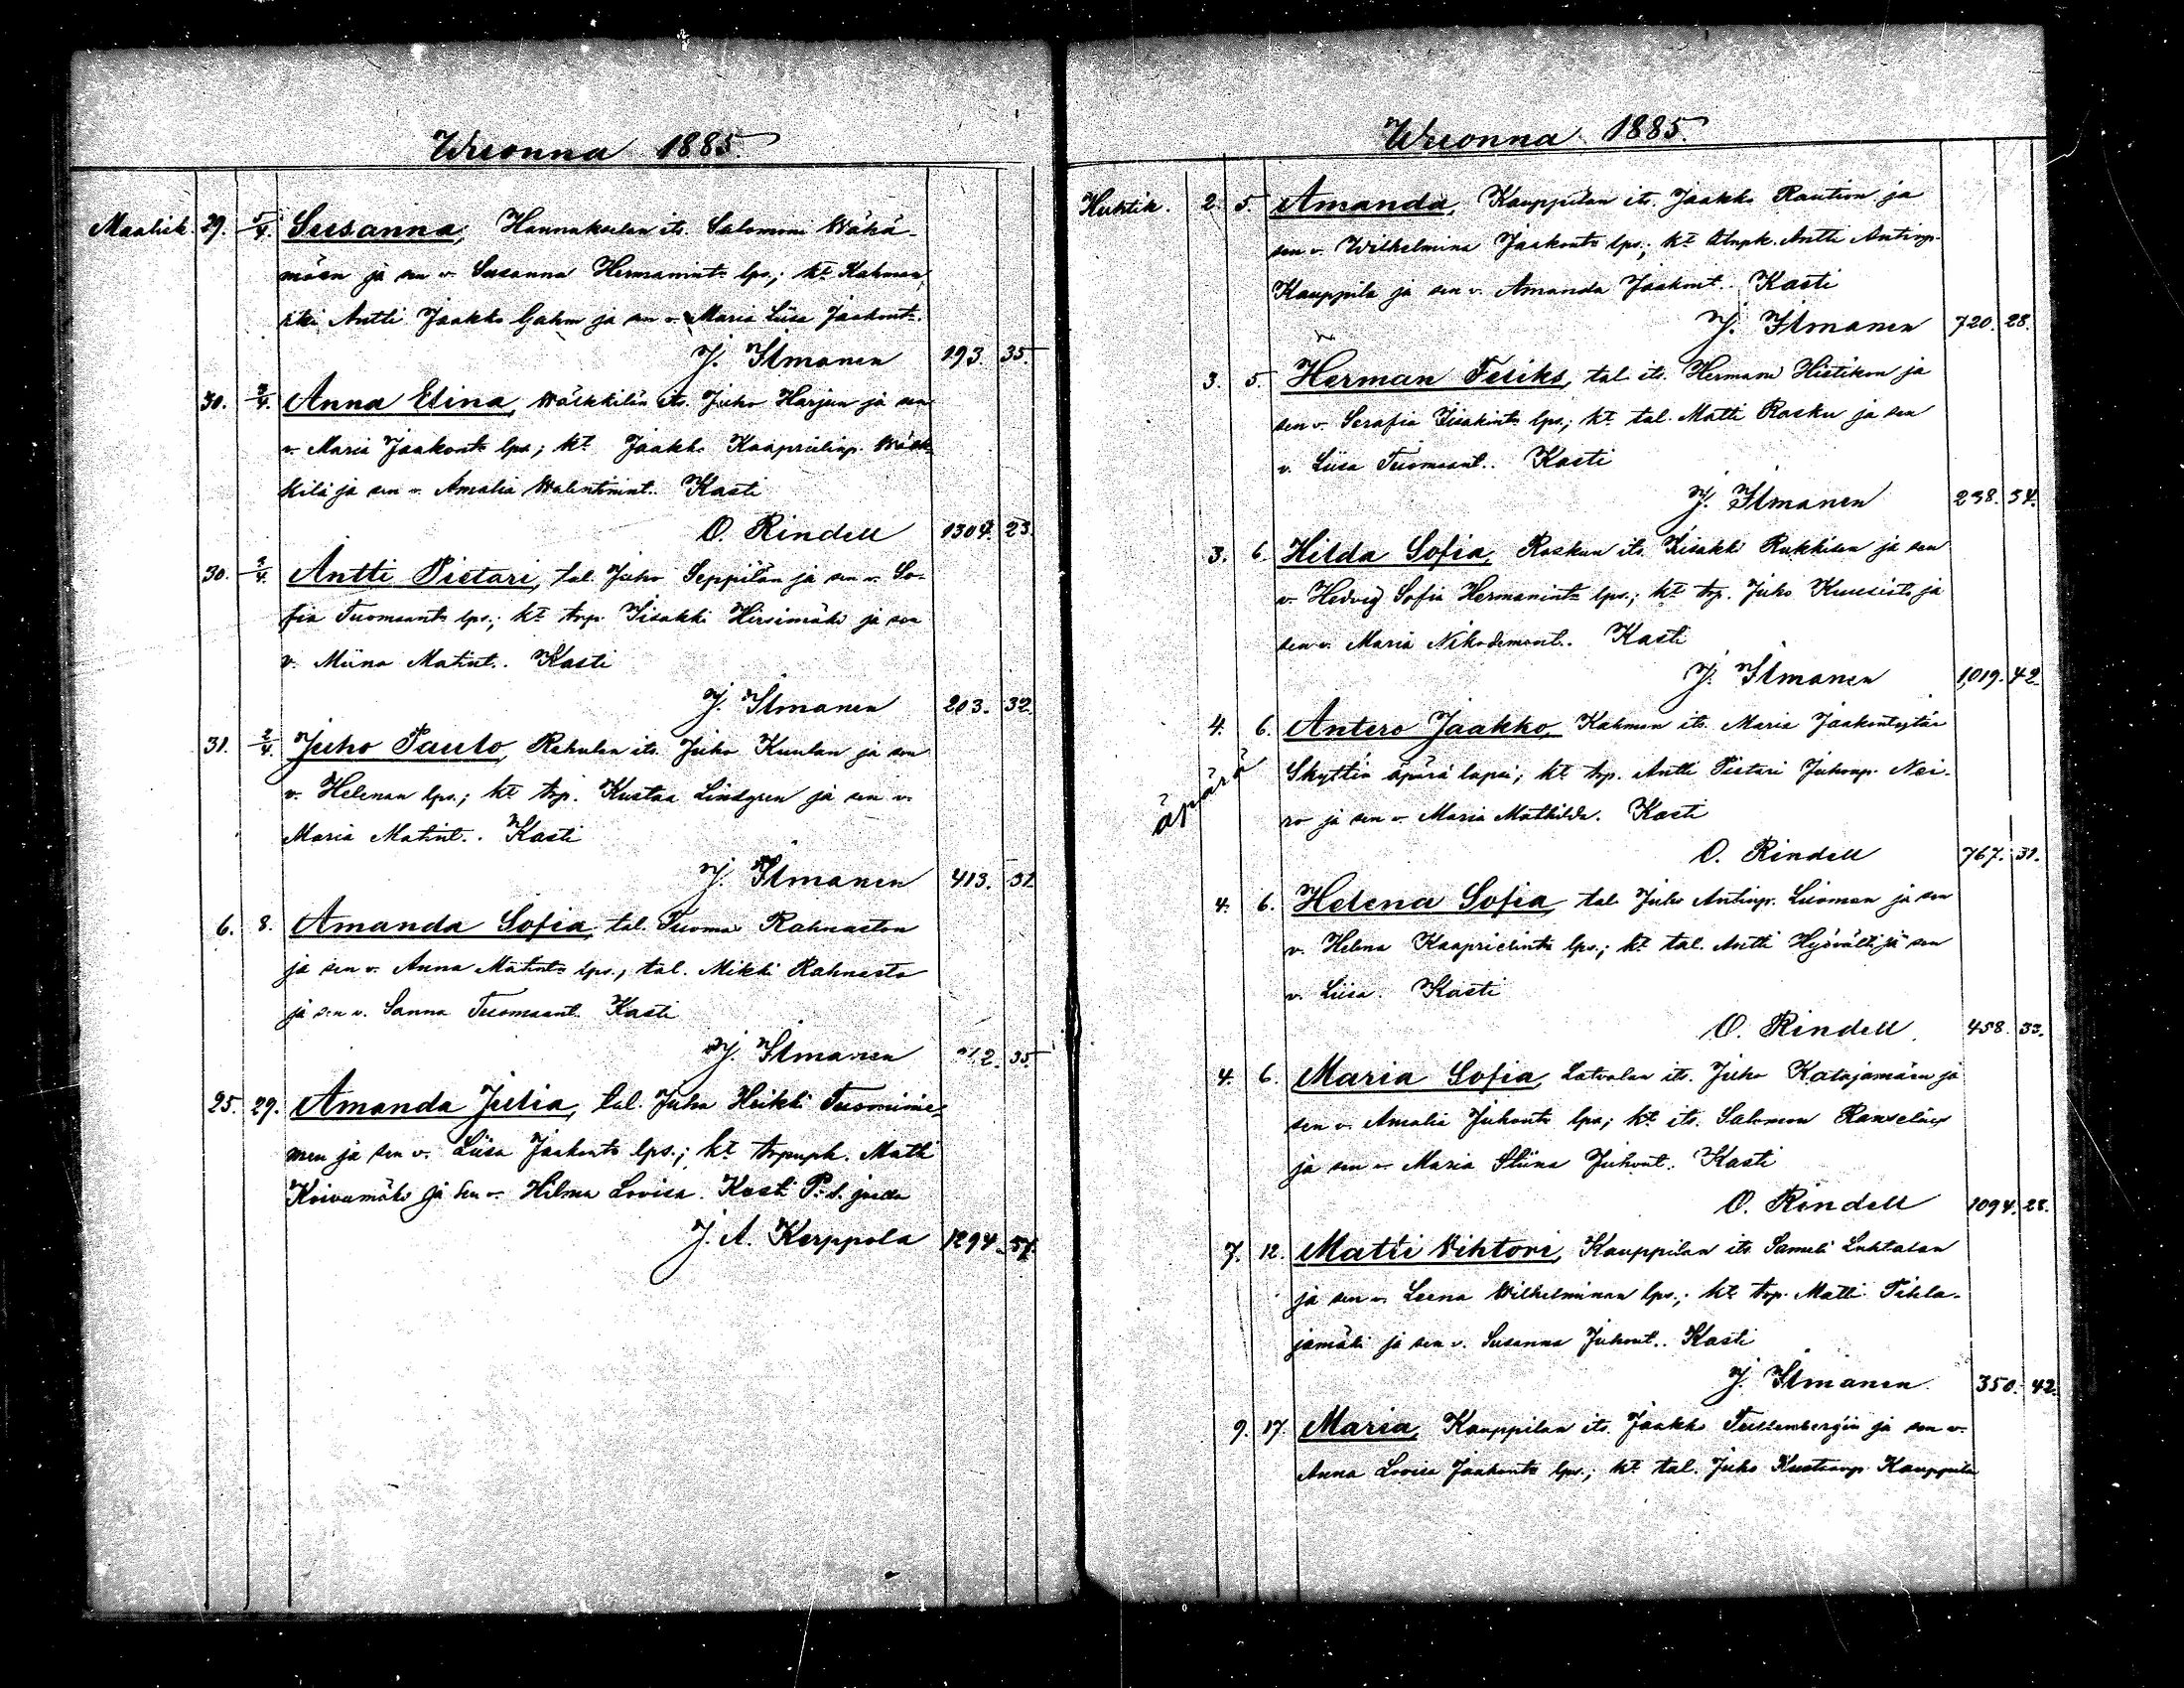 Wuonna 1885.
Maalisk. 29. 5/4. Susanna, Hannukselan its. Salomon Wähä-
mäen ja sen v. Susanna Hermanint. lps.; kt. Kahman
itsi Antti Jaakko Gahm ja sen v. Maria Liisa Jaakont.
J. Ilmanen 193. 35.
30. 3/4. Anna Elina, Wälkkilän its. Juho Harjun ja sen
v. Maria Jaakont. lps.; kt. Jaakko Kaaprielinp. Wälk-
kilä ja sen v. Amalia Walentinint.. Kasti
O. Rindell 1304. 23.
30. 3/4. Antti Pietari, tal. Juho Seppilän ja sen v. So-
fia Tuomaant. lps.; kt. trp. Iisakki Hirsimäki ja sen
v. Miina Matint.. Kasti
J. Ilmanen 203. 32.
31. 2/4. Juho Paulo, Rahulan its. Juho Kuulan ja sen
v. Helenan lps.; kt. trp. Kustaa Lindgren ja sen v.
Maria Matint.. Kasti
J. Ilmanen 413. 31.
6. 8. Amanda Sofia, tal. Tuoma Rahnaston
ja sen v. Anna Matint. lps.; tal. Mikki Rahnasto
ja sen v. Sanna Tuomaant. Kasti
J. Ilmanen 35.
25. 29. Amanda Julia, tal. Juha Heikki Tuominie-
men ja sen v. Liisa Jaakont. lps.; kt. trpnpk. Matti
Koivumäki ja sen v. Hilma Lovisa. Kasti P. S. jossa
J. A. Kerppola 1294. 37.
Wuonna 1885.
Huhtik. 2. 5. Amanda, Kauppilan its. Jaakko Raution ja
sen v. Wilhelmina Jaakont. lps.; kt. tlnpk. Antti Antinp.
Kauppila ja sen v. Amanda Jaakont.. Kasti
J. Ilmanen 720. 28.
3. 5. Herman Feliks, tal. its. Herman Hietikon ja
sen v. Serafia Iisakint. lps.; kt. tal. Matti Rasku ja sen
v. Liisa Tuomaant.. Kasti
J. Ilmanen 238. 34.
3. 6. Hilda Sofia, Raskun its. Iisakki Rukkisen ja sen
v. Hedvig Sofia Hermanint. lps.; kt. trp. Juho Kuusisto ja
sen v. Maria Nikodemont.. Kasti
J. Ilmanen 1,019. 42.
4. 6. Antero Jaakko, Kahman its. Maria Jaakontytär
äpärä Skyttin äpärä lapsi; kt. trp. Antti Pietari Juhonp. Nei-
ro ja sen v. Maria Mathilda. Kasti
O. Rindell 767. 31.
4. 6. Helena Sofia, tal. Juho Antinp. Luoman ja sen
v. Helena Kaaprielint. lps.; kt. tal. Antti Hyövälti ja sen
v. Liisa. Kasti
O. Rindell 458. 33.
4. 6. Maria Sofia, Latvalan its. Juho Katajamäen ja
sen v. Amalia Juhont. lps.; kt. its. Salomon
ja sen v. Maria Stiina Juhont. Kasti
O. Rindell 1094. 28.
7. 12. Matti Wihtori, Kauppilan its. Sameli Luhtalan
ja sen v. Leena Wilhelminan lps.; kt. trp. Matti Pihla-
jamäki ja sen v. Susanna Juhont.. Kasti
J. Ilmanen 350. 42.
9. 17. Maria, Kauppilan its. Jaakko ja sen v.
Anna Lovisa Jaakont. lps.; kt. tal. Juho Kustaanp. Kauppila